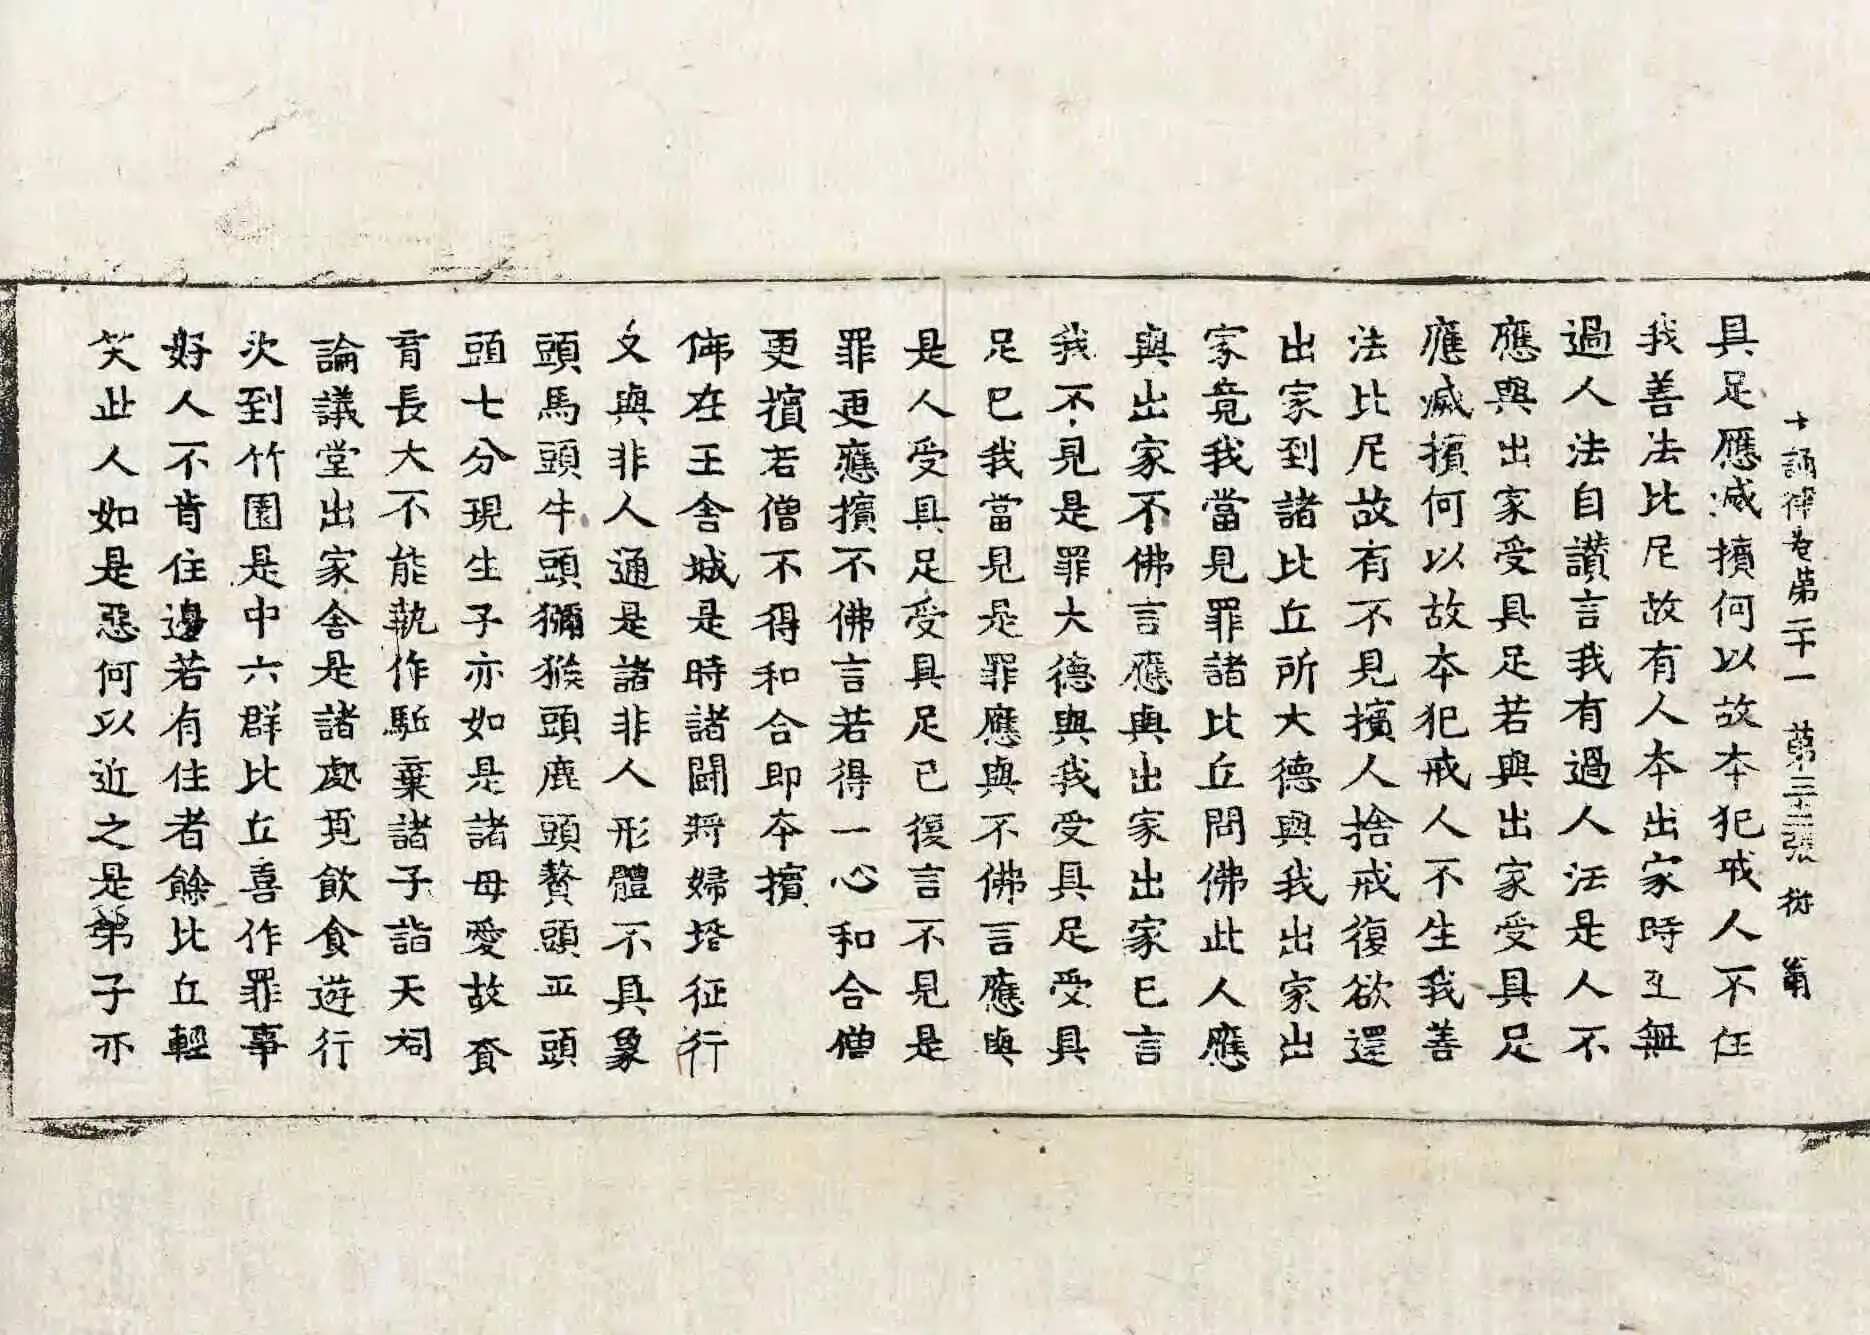 十誦律卷第二十一 第三十二張 猗
具足應滅擯何以故本犯戒人不任
我善法比尼故有人本出家時互無
過人法自讚言我有過人法是人不
應與出家受具足若與出家受具足
應滅擯何以故本犯戒人不生我善
法比尼故有不見擯人捨戒復欲還
出家到諸比丘所大德與我出家出
家竟我當見罪諸比丘問佛此人應
與出家不佛言應與出家出家已言
我不見是罪大德與我受具足受具
足已我當見是罪應與不佛言應與
是人受具足受具足已復言不見是
罪更應擯不佛言若得一心和合僧
更擯若僧不得和合即本擯
佛在王舍城是時諸鬪將婦壻征行
久與非人通是諸非人形體不具象
頭馬頭牛頭獼猴頭鹿頭贅頭平頭
頭七分現生子亦如是諸母愛故養
育長大不能執作驅棄諸子詣天祠
論議堂出家舍是諸處覓飲食遊行
次到竹園是中六群比丘喜作罪事
好人不肯住邊若有住者餘比丘輕
笑此人如是惡何以近之是弟子亦